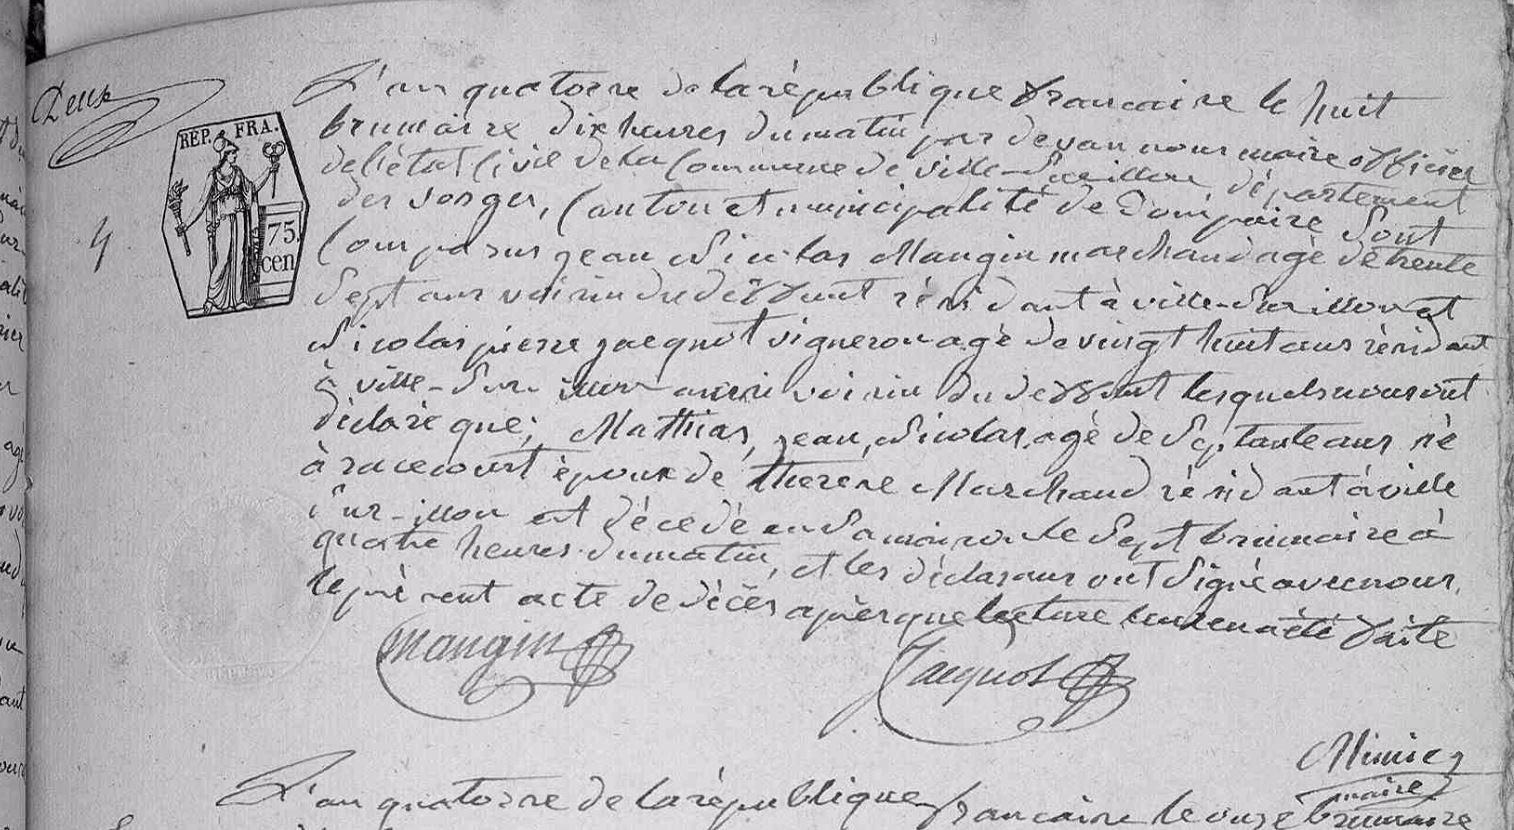 Deux
REP. FRA.
75.
cen
4
L'an quatorze de la république francaise le huit
brumaire dix heures du matin par devan nous maire officier
de l'état Civil de la Commune de ville-sur illon, département
des vosges, Canton et municipalité de Dompaire Sont
Comparus jean Nicolas Mangin marchand agé de trente
Sept ans voisin du deffunt résidant à ville-sur illon et
Nicolas pierre jacquot vigneron agé de vingt huit ans résidant
à ville-sur illon aussi voisin du deffunt lesquels nous ont
déclaré que, Mathias, jean, Nicolas, agé de Septante ans né
à racecourt époux de therese Marchand résidant à ville
sur-illon est décedé en Sa maison le Sept brumaire à
quatre heures du matin, et les déclarans ont Signé avec nous
le présent acte de décès après que lecture leur en a été faite
Mangin
Jacquot
maire
L'an quatorze de la république francaise le onze brumaire